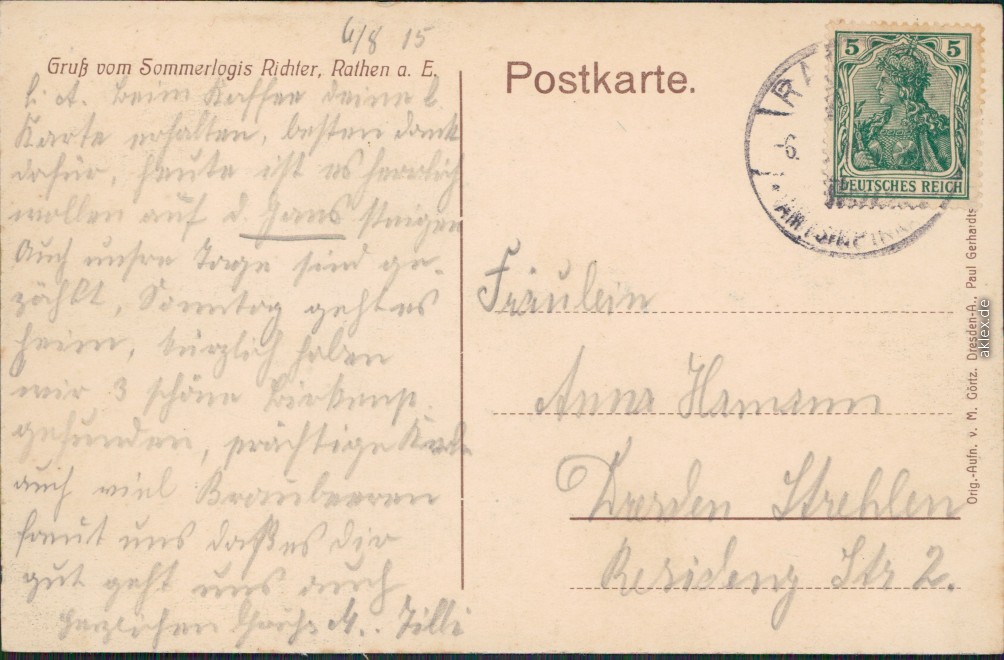 6/8 15
Gruß vom Sommerlogis Richter, Rathen a. E.
Postkarte.
5 5
DEUTSCHES REICH
RA
6.
l. A. Beim Kaffee deine l.
Karte erhalten, besten Dank
dafür, heute ist es herrlich
wollen auf d. Gans steigen
Auch unsre Tage sind ge-
zählt, Sonntag geht es
heim, kürzlich haben
wir 3 schöne Birkenp.
gefunden, prächtige
auch viel Braubeeren
freut uns daß es dir
gut geht uns auch
Herzlichen Tilli
Fräulein
Anna Hamann
Dresden Strehlen
Residenz Str 2.
Orig.-Aufn. v. M. Görtz. Dresden-A., Paul Gerhardts
aklex.de